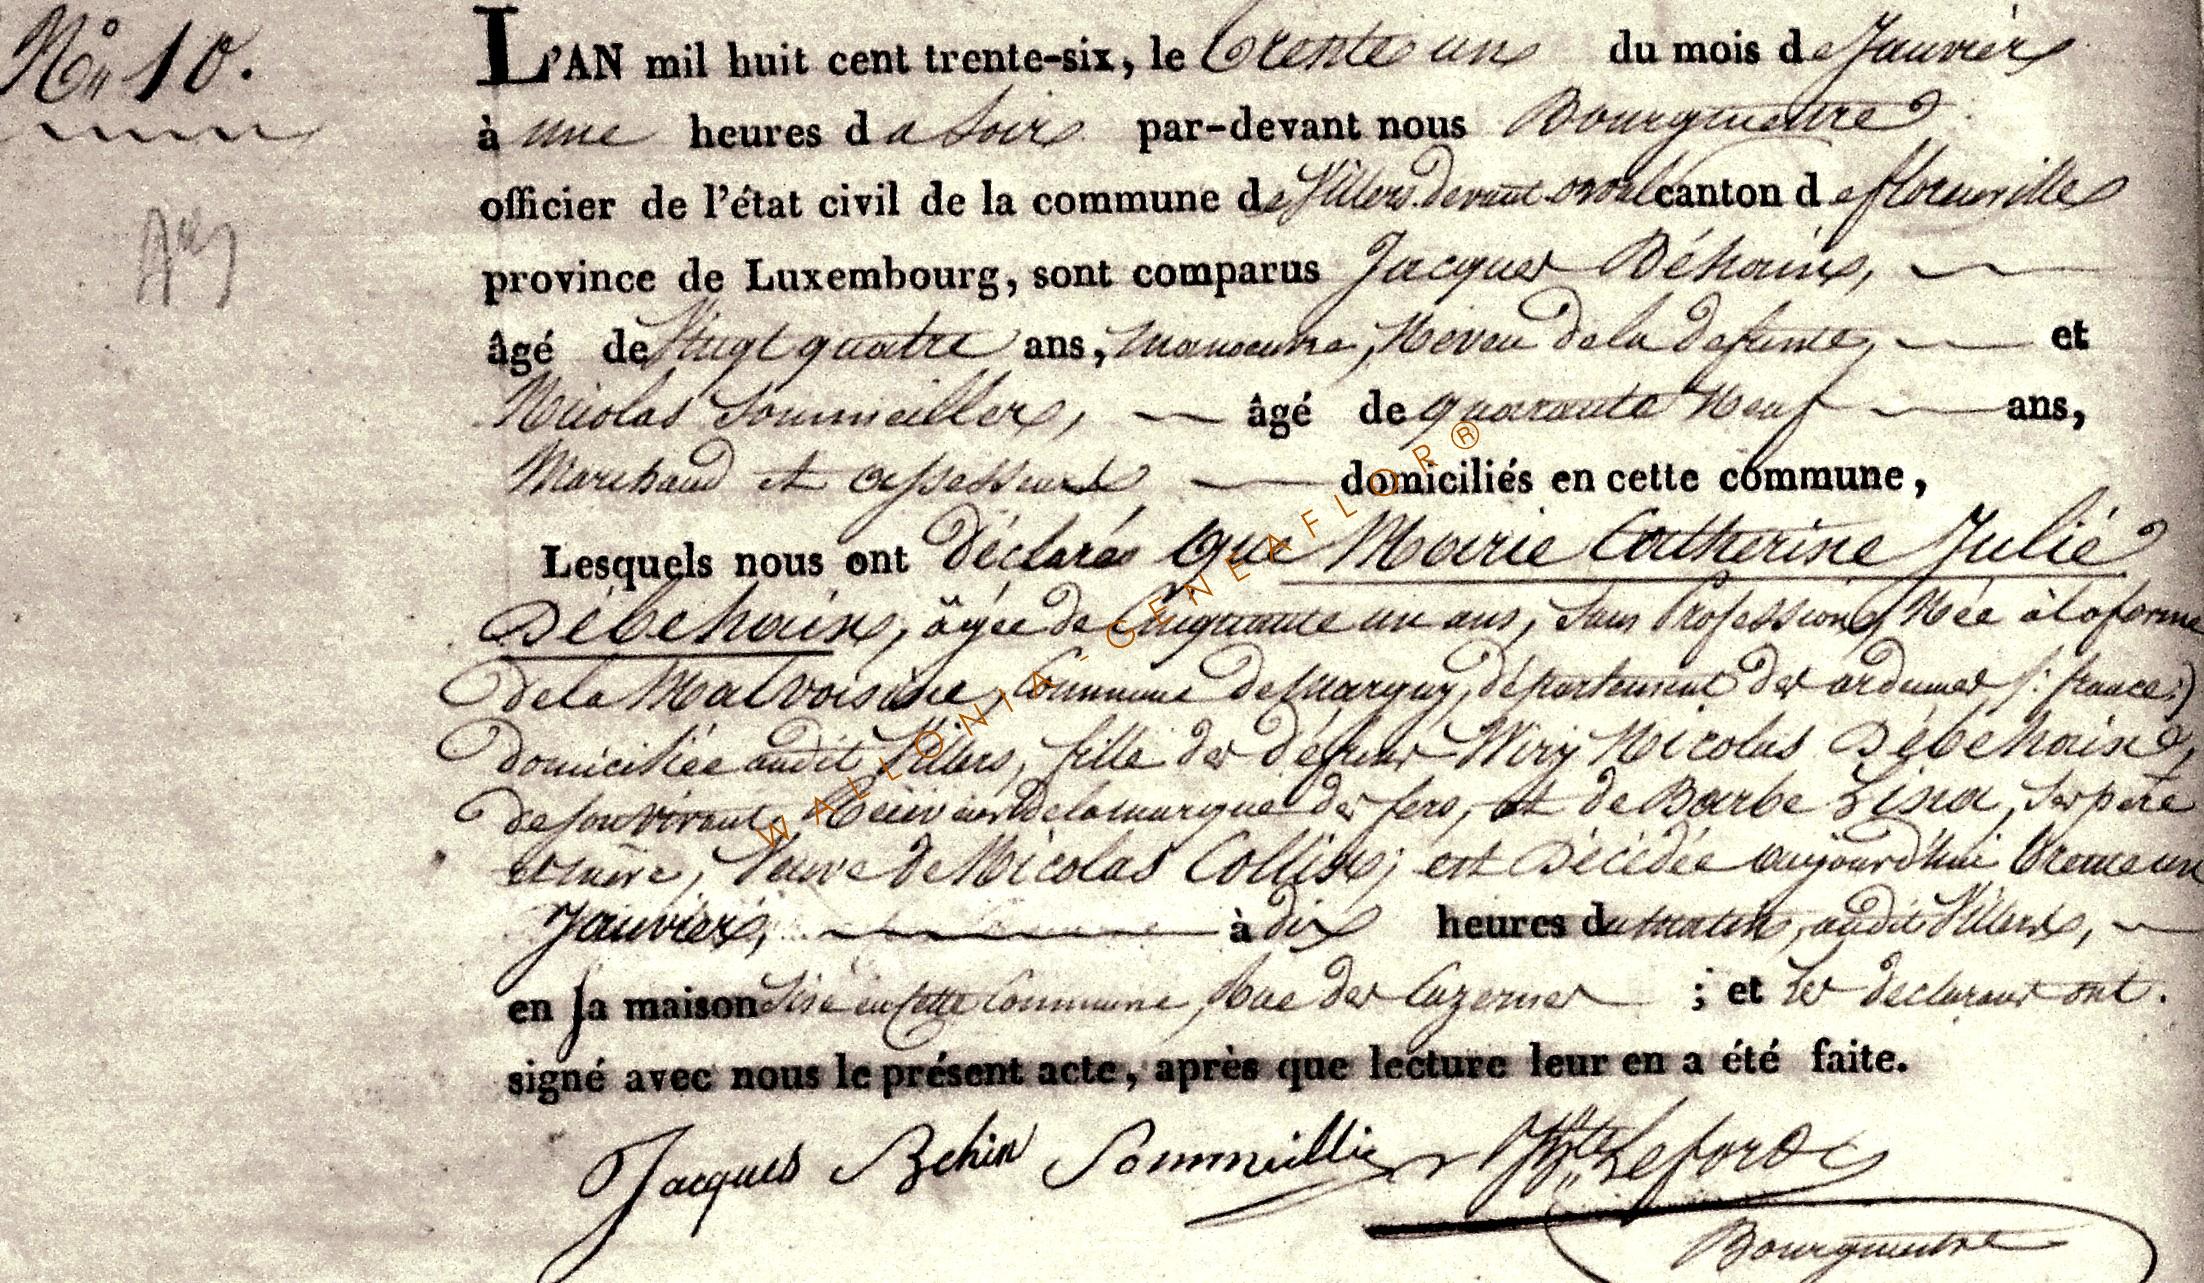 N° 10.
L'AN mil huit cent trente-six, le trente un du mois de Janvier
à une heures du soir par-devant nous Bourguemtre
officier de l'état civil de la commune de Villers devant orval canton de florenville
province de Luxembourg, sont comparus Jacques Béhain,
âgé de Vingt quatre ans, manoeuvre, Neveu de la defunte, et
Nicolas Sommeiller, âgé de quarante Neuf ans,
Marchand et assesseur domiciliés en cette commune,
Lesquels nous ont déclarés que Marie Catherine Julie
Débehain, âgée de Cinquante un ans, sans Profession, Née à la ferme
de la Malvoisine, Commune de Margny, département des ardennes (: france :)
domiciliée audit Villers, fille des défunts Wiry Nicolas Débehain,
de son vivant, de la marque des fers, et de Barbe Lina, ses père
et mère, Veuve de Nicolas Collin; est Décédée aujourd'hui trente un
Janvier, à dix heures du matin, audit Villers,
en sa maison sise en cette Commune, Rue des Cazernes ; et les déclarans ont
signé avec nous le présent acte, après que lecture leur en a été faite.
Jacques Behin Sommeillier Lefort
Bourguemtre
WALLONIA - GENEAFLOR®